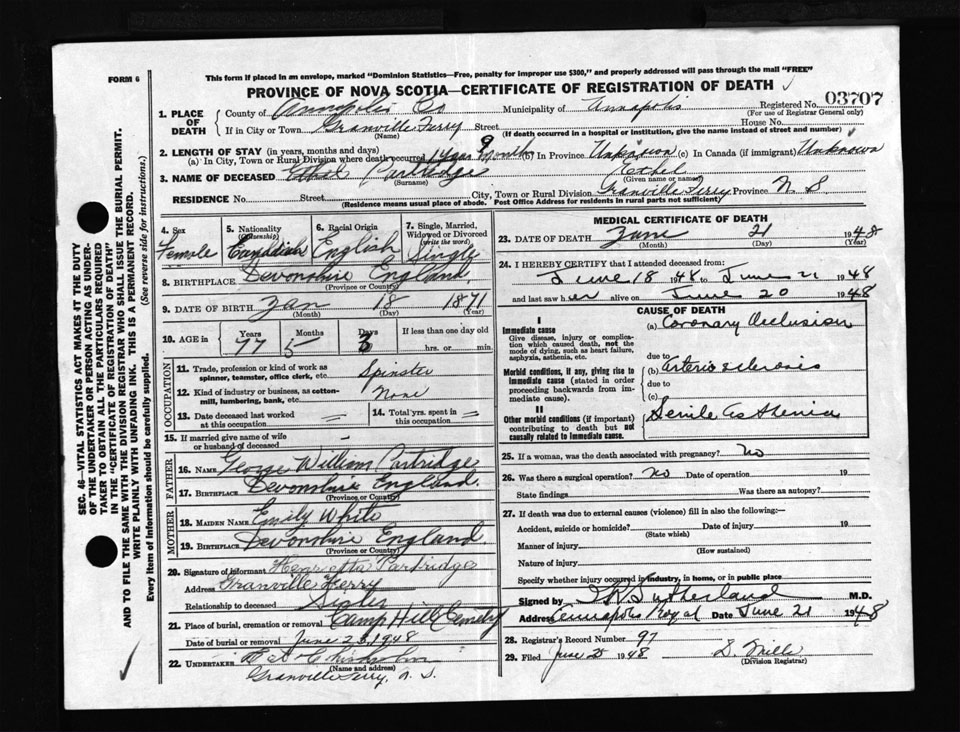 FORM 6
This form if placed in an envelope, marked "Dominion Statistics—Free, penalty for improper use $300," and properly addressed will pass through the mail "FREE"
PROVINCE OF NOVA SCOTIA—CERTIFICATE OF REGISTRATION OF DEATH
1. PLACE OF DEATH
County of Annapolis Co Municipality of Annapolis Registered No. 03707
(For use of Registrar General only)
If in City or Town Granville Ferry Street House No.
(Name) (If death occurred in a hospital or institution, give the name instead of street and number)
2. LENGTH OF STAY (in years, months and days)
(a) In City, Town or Rural Division where death occurred 1 year 9 months (b) In Province Unknown (c) In Canada (if immigrant) Unknown
3. NAME OF DECEASED Ethel Partridge Ethel
(Surname) (Given name or names)
RESIDENCE No. Street City, Town or Rural Division Granville Ferry Province N S
(Residence means usual place of abode. Post Office Address for residents in rural parts not sufficient)
4. Sex Female
5. Nationality (Citizenship) Canadian
6. Racial Origin English
7. Single, Married, Widowed or Divorced (write the word) Single
8. BIRTHPLACE Devonshire England
(Province or Country)
9. DATE OF BIRTH Jan 18 1871
(Month) (Day) (Year)
10. AGE in Years Months Days If less than one day old
77 5 3 hrs. or min.
OCCUPATION
11. Trade, profession or kind of work as spinner, teamster, office clerk, etc. Spinster
12. Kind of industry or business, as cotton-mill, lumbering, bank, etc. None
13. Date deceased last worked at this occupation
14. Total yrs. spent in this occupation
15. If married give name of wife or husband of deceased
FATHER
16. NAME George William Partridge
17. BIRTHPLACE Devonshire England.
(Province or Country)
MOTHER
18. MAIDEN NAME Emily White
19. BIRTHPLACE Devonshire England
(Province or Country)
20. Signature of informant Henrietta Partridge
Address Granville Ferry
Relationship to deceased Sister
21. Place of burial, cremation or removal Camp Hill Cemetry
Date of burial or removal June 23, 1948
22. UNDERTAKER
(Name and address)
Granville Ferry, N. S.
MEDICAL CERTIFICATE OF DEATH
23. DATE OF DEATH June 21 1948
(Month) (Day) (Year)
24. I HEREBY CERTIFY that I attended deceased from:
June 18 1948 to June 21 1948
and last saw her alive on June 20 1948
CAUSE OF DEATH
I
Immediate cause
Give disease, injury or complication which caused death, not the mode of dying, such as heart failure, asphyxia, asthenia, etc.
(a) Coronary Occlusion
due to
Morbid conditions, if any, giving rise to immediate cause (stated in order proceeding backwards from immediate cause).
(b) Arteriosclerosis
due to
(c)
II
Other morbid conditions (if important) contributing to death but not causally related to immediate cause.
Senile Asthenia
25. If a woman, was the death associated with pregnancy? No
26. Was there a surgical operation? No Date of operation 19
State findings Was there an autopsy?
27. If death was due to external causes (violence) fill in also the following:—
Accident, suicide or homicide? Date of injury 19
(State which)
Manner of injury
(How sustained)
Nature of injury
Specify whether injury occurred in industry, in home, or in public place
Signed by Sutherland M.D.
Address Annapolis Royal Date June 21 1948
28. Registrar's Record Number 97
29. Filed June 25 1948 D. Mills
(Division Registrar)
SEC. 46—VITAL STATISTICS ACT MAKES IT THE DUTY
OF THE UNDERTAKER OR PERSON ACTING AS UNDER-
TAKER TO OBTAIN ALL THE PARTICULARS REQUIRED
IN THE "CERTIFICATE OF REGISTRATION OF DEATH"
AND TO FILE THE SAME WITH THE DIVISION REGISTRAR WHO SHALL ISSUE THE BURIAL PERMIT.
WRITE PLAINLY WITH UNFADING INK. THIS IS A PERMANENT RECORD.
Every item of information should be carefully supplied. (See reverse side for instructions.)